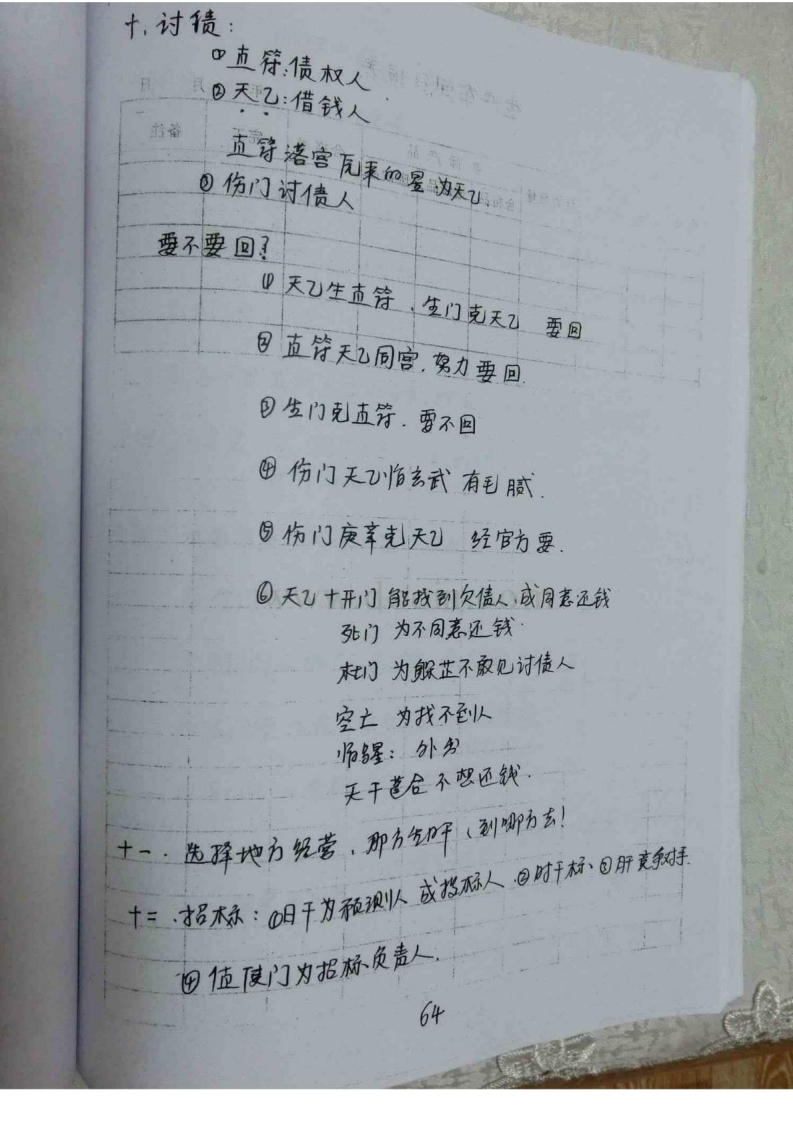 十、讨债:
①直符:债权人
②天乙:借钱人
直符落宫原来的星为天乙
③伤门讨债人
要不要回?
①天乙生直符、生门克天乙 要回
②直符天乙同宫.努力要回.
③生门克直符.要不回
④伤门天乙临玄武 有毛腻.
⑤伤门庚辛克天乙 经官方要.
⑥天乙十开门 能找到欠债人,或同意还钱
死门 为不同意还钱.
杜门 为躲芷不敢见讨债人
空亡 为找不到人
临马星: 外出
天干逢合不想还钱.
十一.选择地方经营、那方生日干、到哪方去!
十二.招标:①日干为预测人 或投标人.②时干标、③月干竞争对手.
④值使门为招标负责人.
64